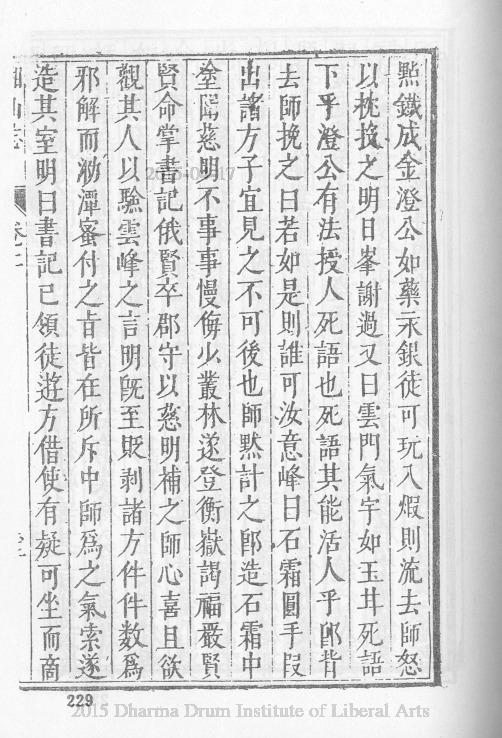 點鐵成金澄公如藥汞銀徒可玩入煆則流去師怒
以枕投之明日峯謝過又曰雲門氣宇如王其死語
下乎澄公有法授人死語也死語其能活人乎即背
去師挽之曰若如是則誰可汝意峰曰石霜圓手段
出諸方子宜見之不可後也師默計之即造石霜中
塗聞慈明不事事慢侮少叢林遂登衡嶽謁福嚴賢
賢命掌書記俄賢卒郡守以慈明補之師心喜且欲
觀其人以驗雲峰之言明旣至貶剥諸方件件數爲
邪解而泐潭密付之旨皆在所斥中師爲之氣索遂
造其室明曰書記已領徒遊方借使有疑可坐而商
山志
卷二
229
2015 Dharma Drum Institute of Liberal Arts